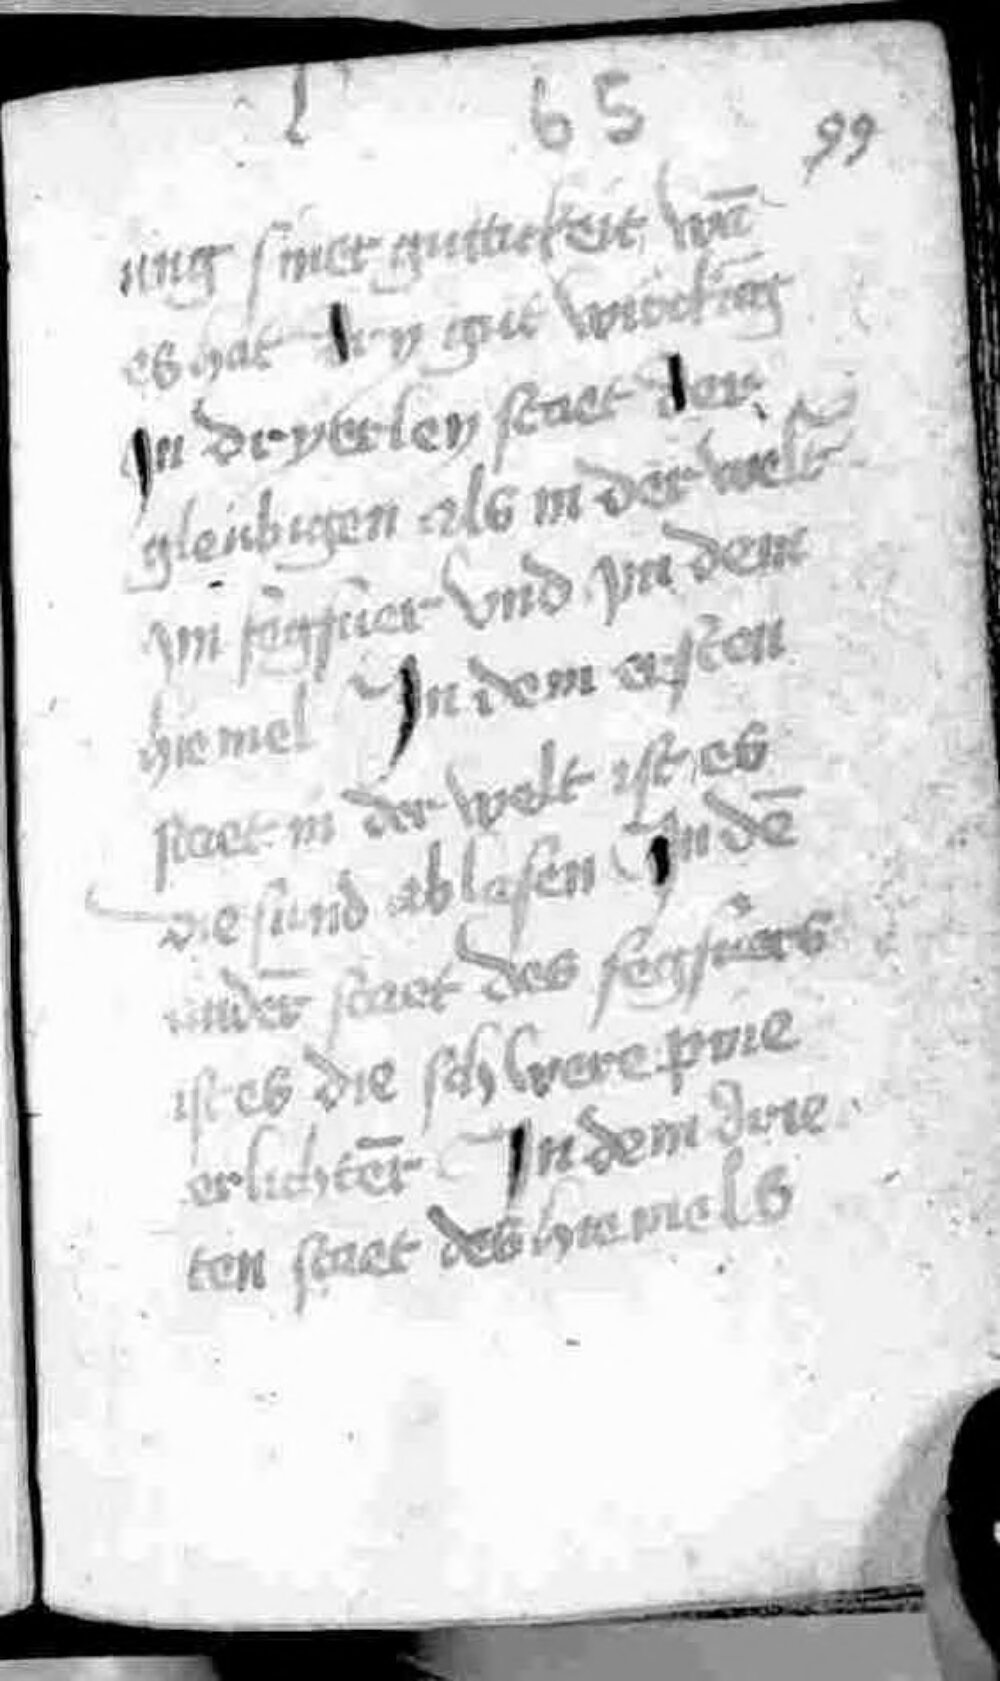 l 65 99
ung siner guttickeit wā
es hat dry gut wirckūg
In dryerley staet der
gleubigen als in der welt
ym fegfuer vnd yn dem
hiemel In dem ersten
staet in der welt ist es
die sund ablesen In dē
andeř staet des fegfuers
ist es die schwere pine
erlichteř In dem drie
ten staet des hiemels